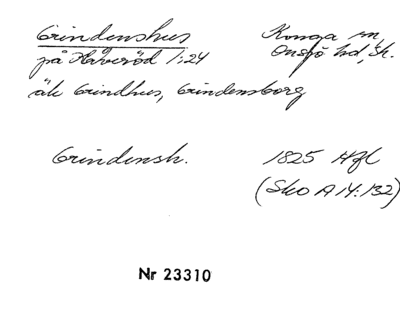 Grindenshus Konga sn,
på Håveröd 1:24 Onsjö hd, Sk.
äk Grindhus, Grindensborg
Grindensh. 1825 Hfl
(Sko A 14:132)
Nr 23310